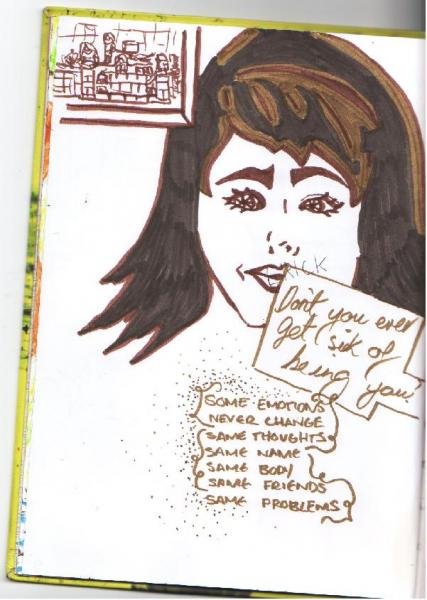 Don't you ever
get sick of
being you
SOME EMOTIONS
NEVER CHANGE
SAME THOUGHTS
SAME NAME
SAME BODY
SAME FRIENDS
SAME PROBLEMS